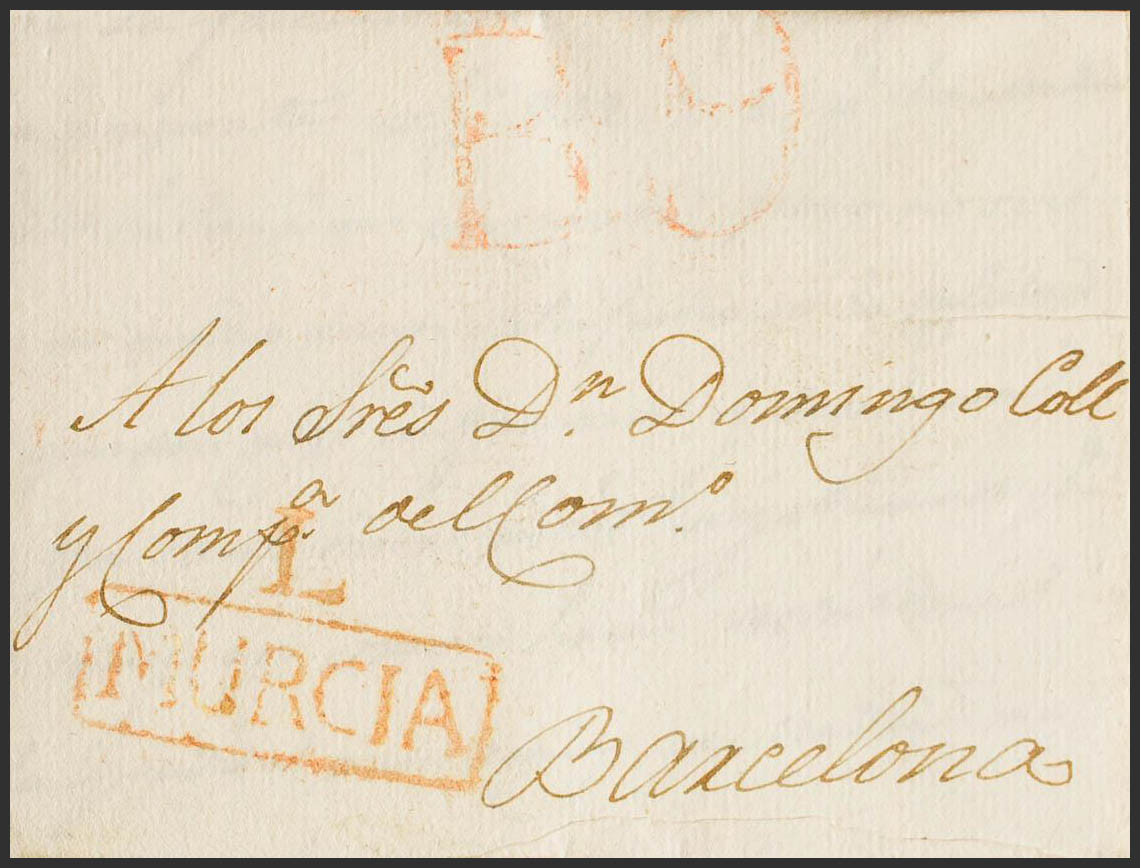 B 9
A los Sres Dn. Domingo Coll
y Compa. del Como.
L
MURCIA
Barcelona